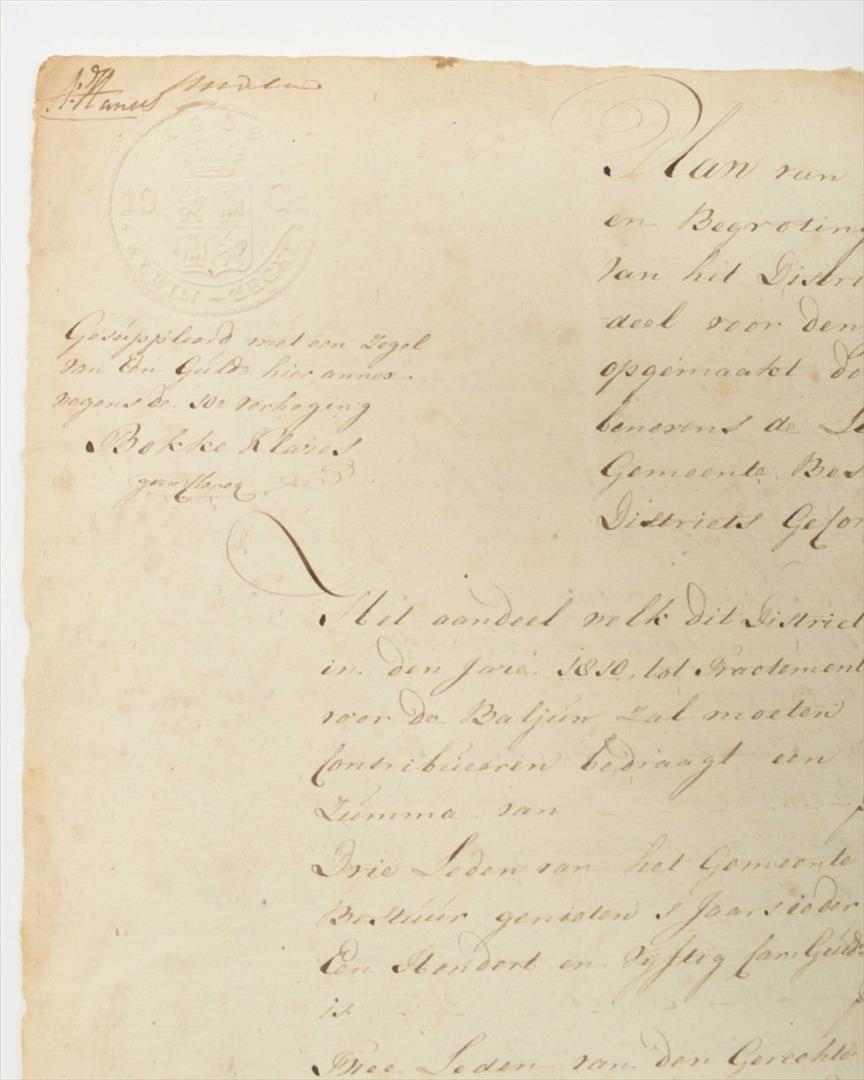 A: Hanses
1808
10 G:
KLEIN-ZEGEL
Gesuppleerd met een Zegel
van Een Guld: hier annex.
wegens de 10e Verhoging
Bokke Klazes
Plan van
en Begroting
van het Distri
deel voor den
opgemaakt do
benevens de Le
Gemeente Bes
Districts Gecon
Het aandeel welk dit District
in den Jare 1810, tot Tractement
voor de Baljúw, zal moeten
Contribúeeren bedraagt een
Zúmma van f
Drie Leden van het Gemeente
Bestúúr genieten s Jaars ieder
Een Hondert en Vyftig Car: Guld:
is f
Twee Leden van den Gerechte